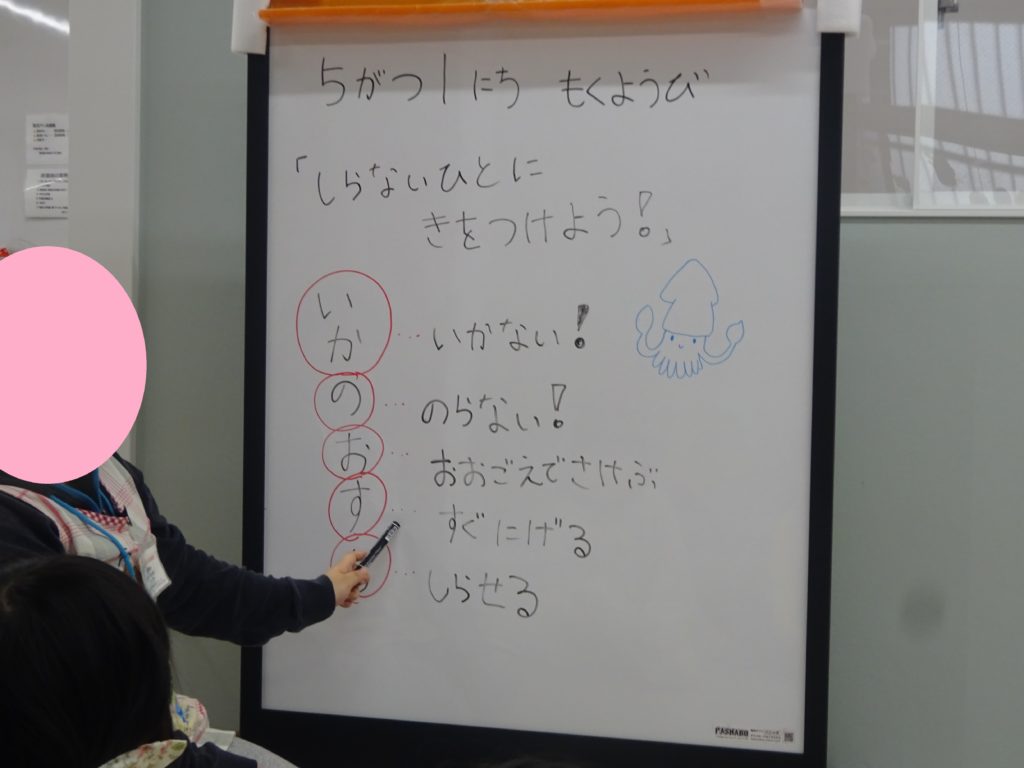 5がつ1にち もくようび
「しらないひとに
きをつけよう!」
いか…いかない!
の…のらない!
お…おおごえでさけぶ
す…すぐにげる
…しらせる
PASHABO